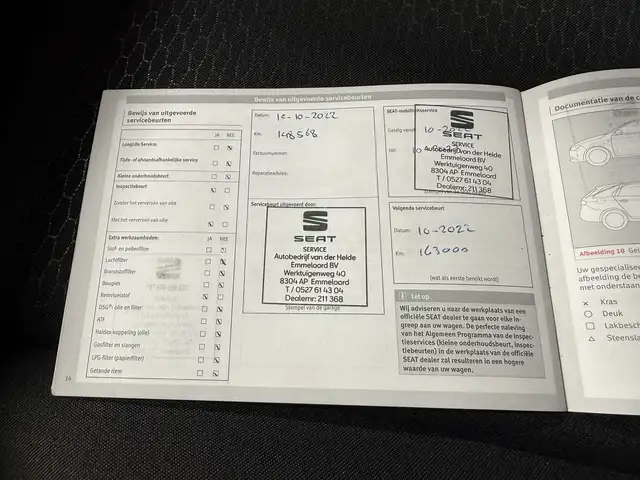 Bewijs van uitgevoerde servicebeurten
Bewijs van uitgevoerde
servicebeurten
JA NEE
LongLife Service:
Tijds- of afstandsafhankelijke service
Kleine onderhoudsbeurt
Inspectiebeurt
Zonder het verversen van olie
Met het verversen van olie
Extra werkzaamheden: JA NEE
Stof- en pollenfilter
Luchtfilter
Brandstoffilter
Bougies
Remvloeistof
DSG®: olie en filter
ATF
Haldex-koppeling (olie)
Gasfilter en slangen
LPG-filter (papierfilter)
Getande riem
14
Datum: -10-2022
Km: 148568
Factuurnummer:
Reparatieadvies:
Servicebeurt uitgevoerd door:
SEAT
SERVICE
Autobedrijf van der Heide
Emmeloord BV
Werktuigenweg 40
8304 AP Emmeloord
T / 0527 61 43 04
Dealernr: 211 368
Stempel van de garage
SEAT-mobiliteitsservice
Geldig vanaf 10-2022
tot: 10
SEAT
SERVICE
Autobedrijf van der Heide
Emmeloord BV
Werktuigenweg 40
8304 AP Emmeloord
T / 0527 61 43 04
Dealernr: 211 368
Stempel van de
Volgende servicebeurt
Datum: 10-2022
Km: 163000
(wat als eerste bereikt wordt)
Let op
Wij adviseren u naar de werkplaats van een
officiële SEAT dealer te gaan voor elke in-
greep aan uw wagen. De perfecte naleving
van het Algemeen Programma van de inspec-
tieservices (kleine onderhoudsbeurt, inspec-
tiebeurten) in de werkplaats van de officiële
SEAT dealer zal resulteren in een hogere
waarde van uw wagen.
Documentatie van de c
Afbeelding 10 Gel
Uw gespecialisee
afbeelding de be
met onderstaan
× Kras
○ Deuk
□ Lakbesch
△ Steensla